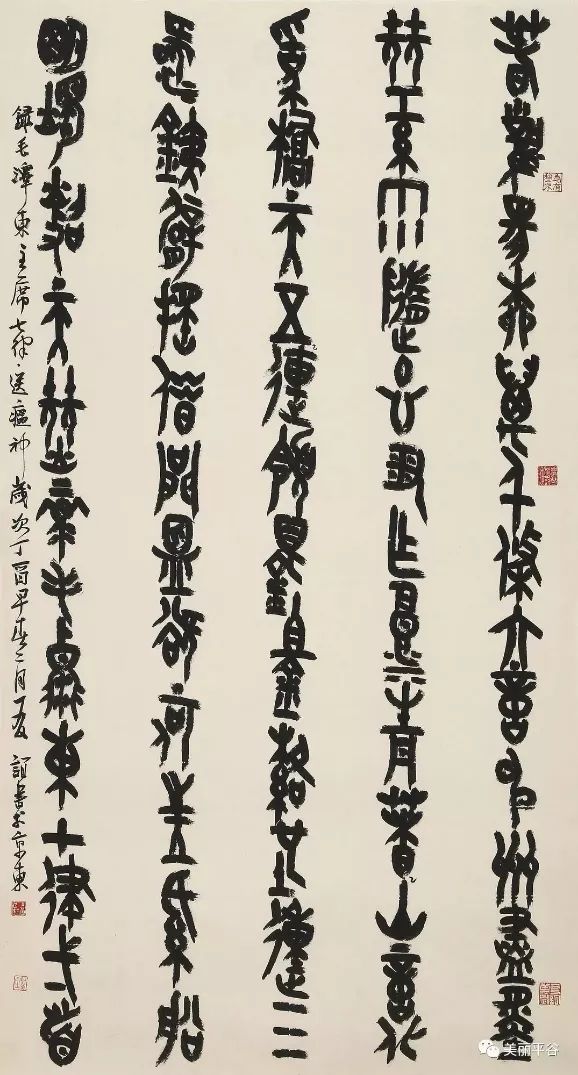 春風楊柳萬千條六億神州盡舜
堯紅雨隨心翻作浪青著山意化
爲橋天五連嶺銀鋤落地動三
河鐵臂搖借問瘟欲何往紙船
明燭照天燒毛澤東七律一首
錄毛澤東主席七律·送瘟神 歲次丁酉早春二月 書於京東
美丽平谷